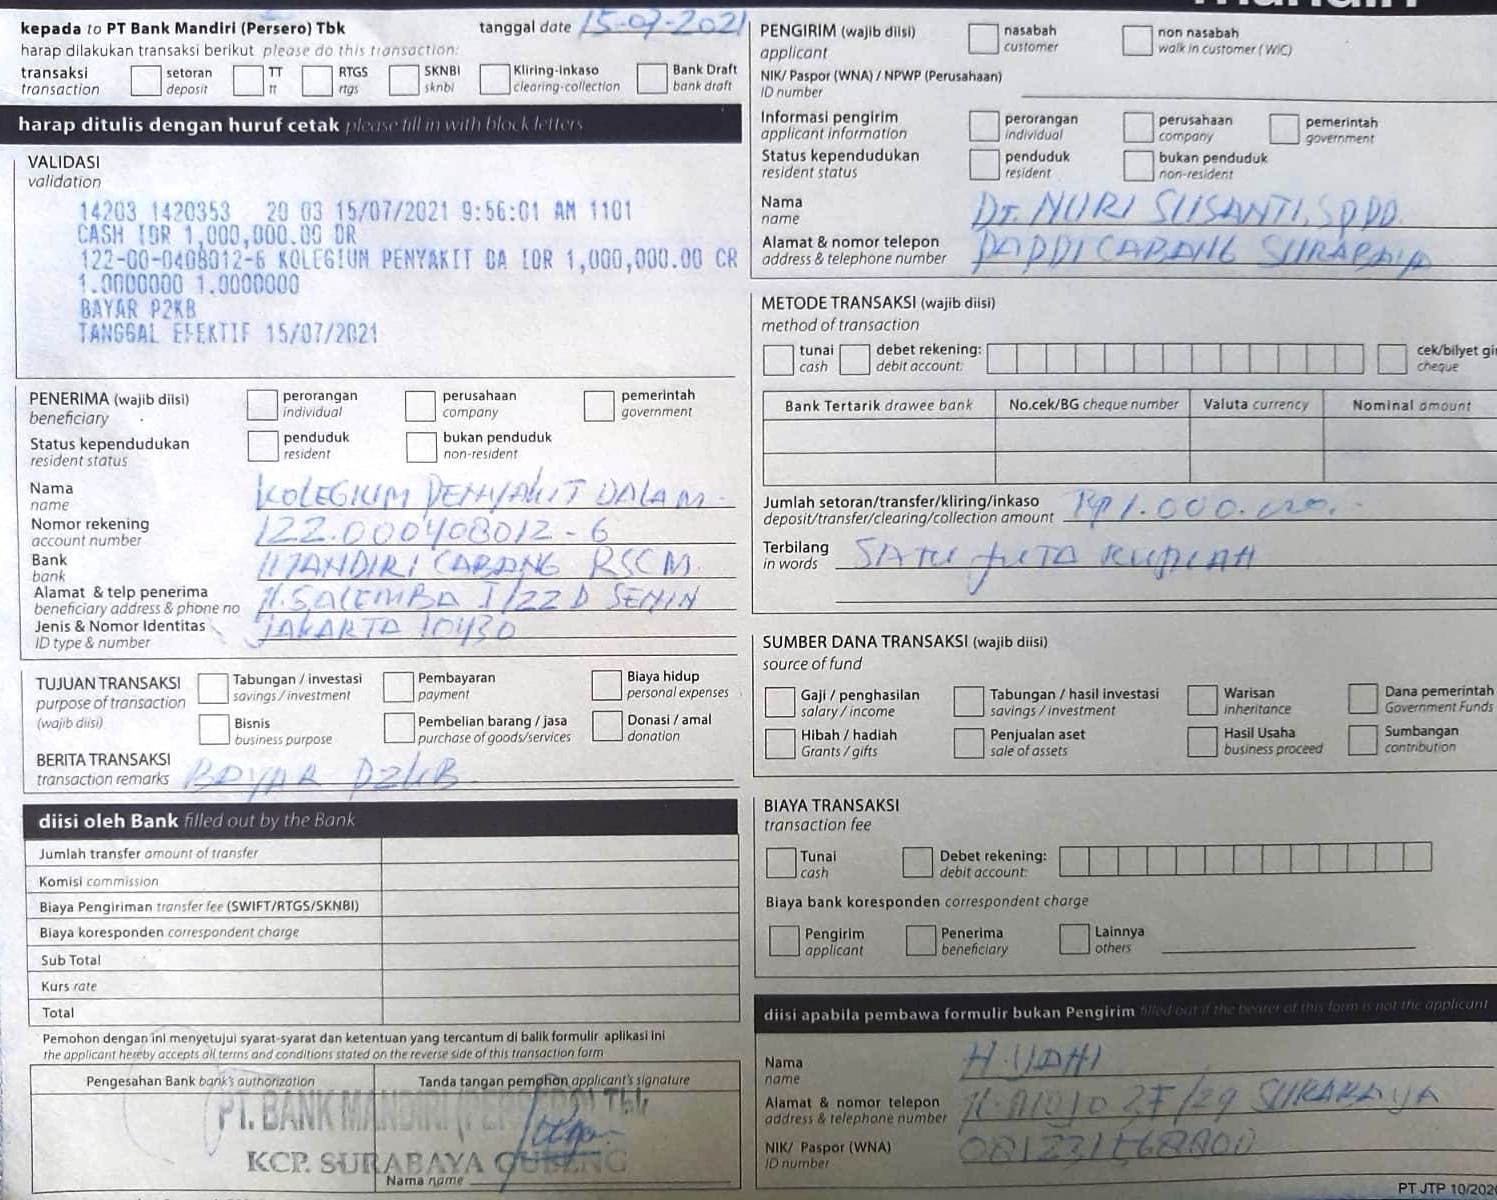 kepada to PT Bank Mandiri (Persero) Tbk tanggal date 15-07-2021
harap dilakukan transaksi berikut please do this transaction:
transaksi setoran TT RTGS SKNBI Kliring-inkaso Bank Draft
transaction deposit tt rtgs sknbi clearing-collection bank draft
harap ditulis dengan huruf cetak please fill in with block letters
VALIDASI
validation
14203 1420353 20 03 15/07/2021 9:56:01 AM 1101
CASH IDR 1,000,000.00 DR
122-00-0408012-6 KOLEGIUM PENYAKIT DA IDR 1,000,000.00 CR
1.0000000 1.0000000
BAYAR P2KB
TANGGAL EFEKTIF 15/07/2021
PENERIMA (wajib diisi) perorangan perusahaan pemerintah
beneficiary individual company government
Status kependudukan penduduk bukan penduduk
resident status resident non-resident
Nama KOLEGIUM PENYAKIT DALAM
name
Nomor rekening 122.000408012-6
account number
Bank MANDIRI CABANG RSCM
bank
Alamat & telp penerima Jl. SALEMBA I/22 D SENEN
beneficiary address & phone no
Jenis & Nomor Identitas JAKARTA 10430
ID type & number
TUJUAN TRANSAKSI Tabungan / investasi Pembayaran Biaya hidup
purpose of transaction savings / investment payment personal expenses
(wajib diisi) Bisnis Pembelian barang / jasa Donasi / amal
business purpose purchase of goods/services donation
BERITA TRANSAKSI BAYAR P2KB
transaction remarks
diisi oleh Bank filled out by the Bank
Jumlah transfer amount of transfer
Komisi commission
Biaya Pengiriman transfer fee (SWIFT/RTGS/SKNBI)
Biaya koresponden correspondent charge
Sub Total
Kurs rate
Total
Pemohon dengan ini menyetujui syarat-syarat dan ketentuan yang tercantum di balik formulir aplikasi ini
the applicant hereby accepts all terms and conditions stated on the reverse side of this transaction form
Pengesahan Bank bank's authorization Tanda tangan pemohon applicant's signature
PT. BANK MANDIRI (PERSERO) Tbk
KCP. SURABAYA GUBENG
Nama name
PENGIRIM (wajib diisi) nasabah non nasabah
applicant customer walk in customer (WIC)
NIK/ Paspor (WNA) / NPWP (Perusahaan)
ID number
Informasi pengirim perorangan perusahaan pemerintah
applicant information individual company government
Status kependudukan penduduk bukan penduduk
resident status resident non-resident
Nama Dr. NURI SUSANTI, SPPD
name
Alamat & nomor telepon PAPDI CABANG SURABAYA
address & telephone number
METODE TRANSAKSI (wajib diisi)
method of transaction
tunai debet rekening: cek/bilyet gi
cash debit account: cheque
Bank Tertarik drawee bank No.cek/BG cheque number Valuta currency Nominal amount
Jumlah setoran/transfer/kliring/inkaso Rp 1.000.000,-
deposit/transfer/clearing/collection amount
Terbilang SATU JUTA RUPIAH
in words
SUMBER DANA TRANSAKSI (wajib diisi)
source of fund
Gaji / penghasilan Tabungan / hasil investasi Warisan Dana pemerintah
salary / income savings / investment inheritance Government Funds
Hibah / hadiah Penjualan aset Hasil Usaha Sumbangan
Grants / gifts sale of assets business proceed contribution
BIAYA TRANSAKSI
transaction fee
Tunai Debet rekening:
cash debit account:
Biaya bank koresponden correspondent charge
Pengirim Penerima Lainnya
applicant beneficiary others
diisi apabila pembawa formulir bukan Pengirim filled out if the bearer of this form is not the applicant
Nama H. UDHI
name
Alamat & nomor telepon SURABAYA
address & telephone number
NIK/ Paspor (WNA)
ID number
PT JTP 10/202